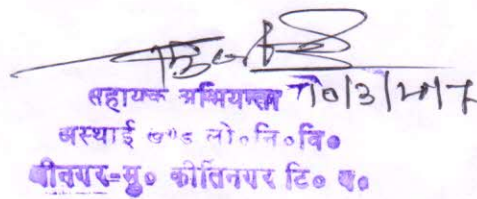 सहायक अभियन्ता 10/3/2017
अस्थाई खण्ड लो॰नि॰वि॰
श्रीनगर-मु॰ कीर्तिनगर टि॰ ग॰